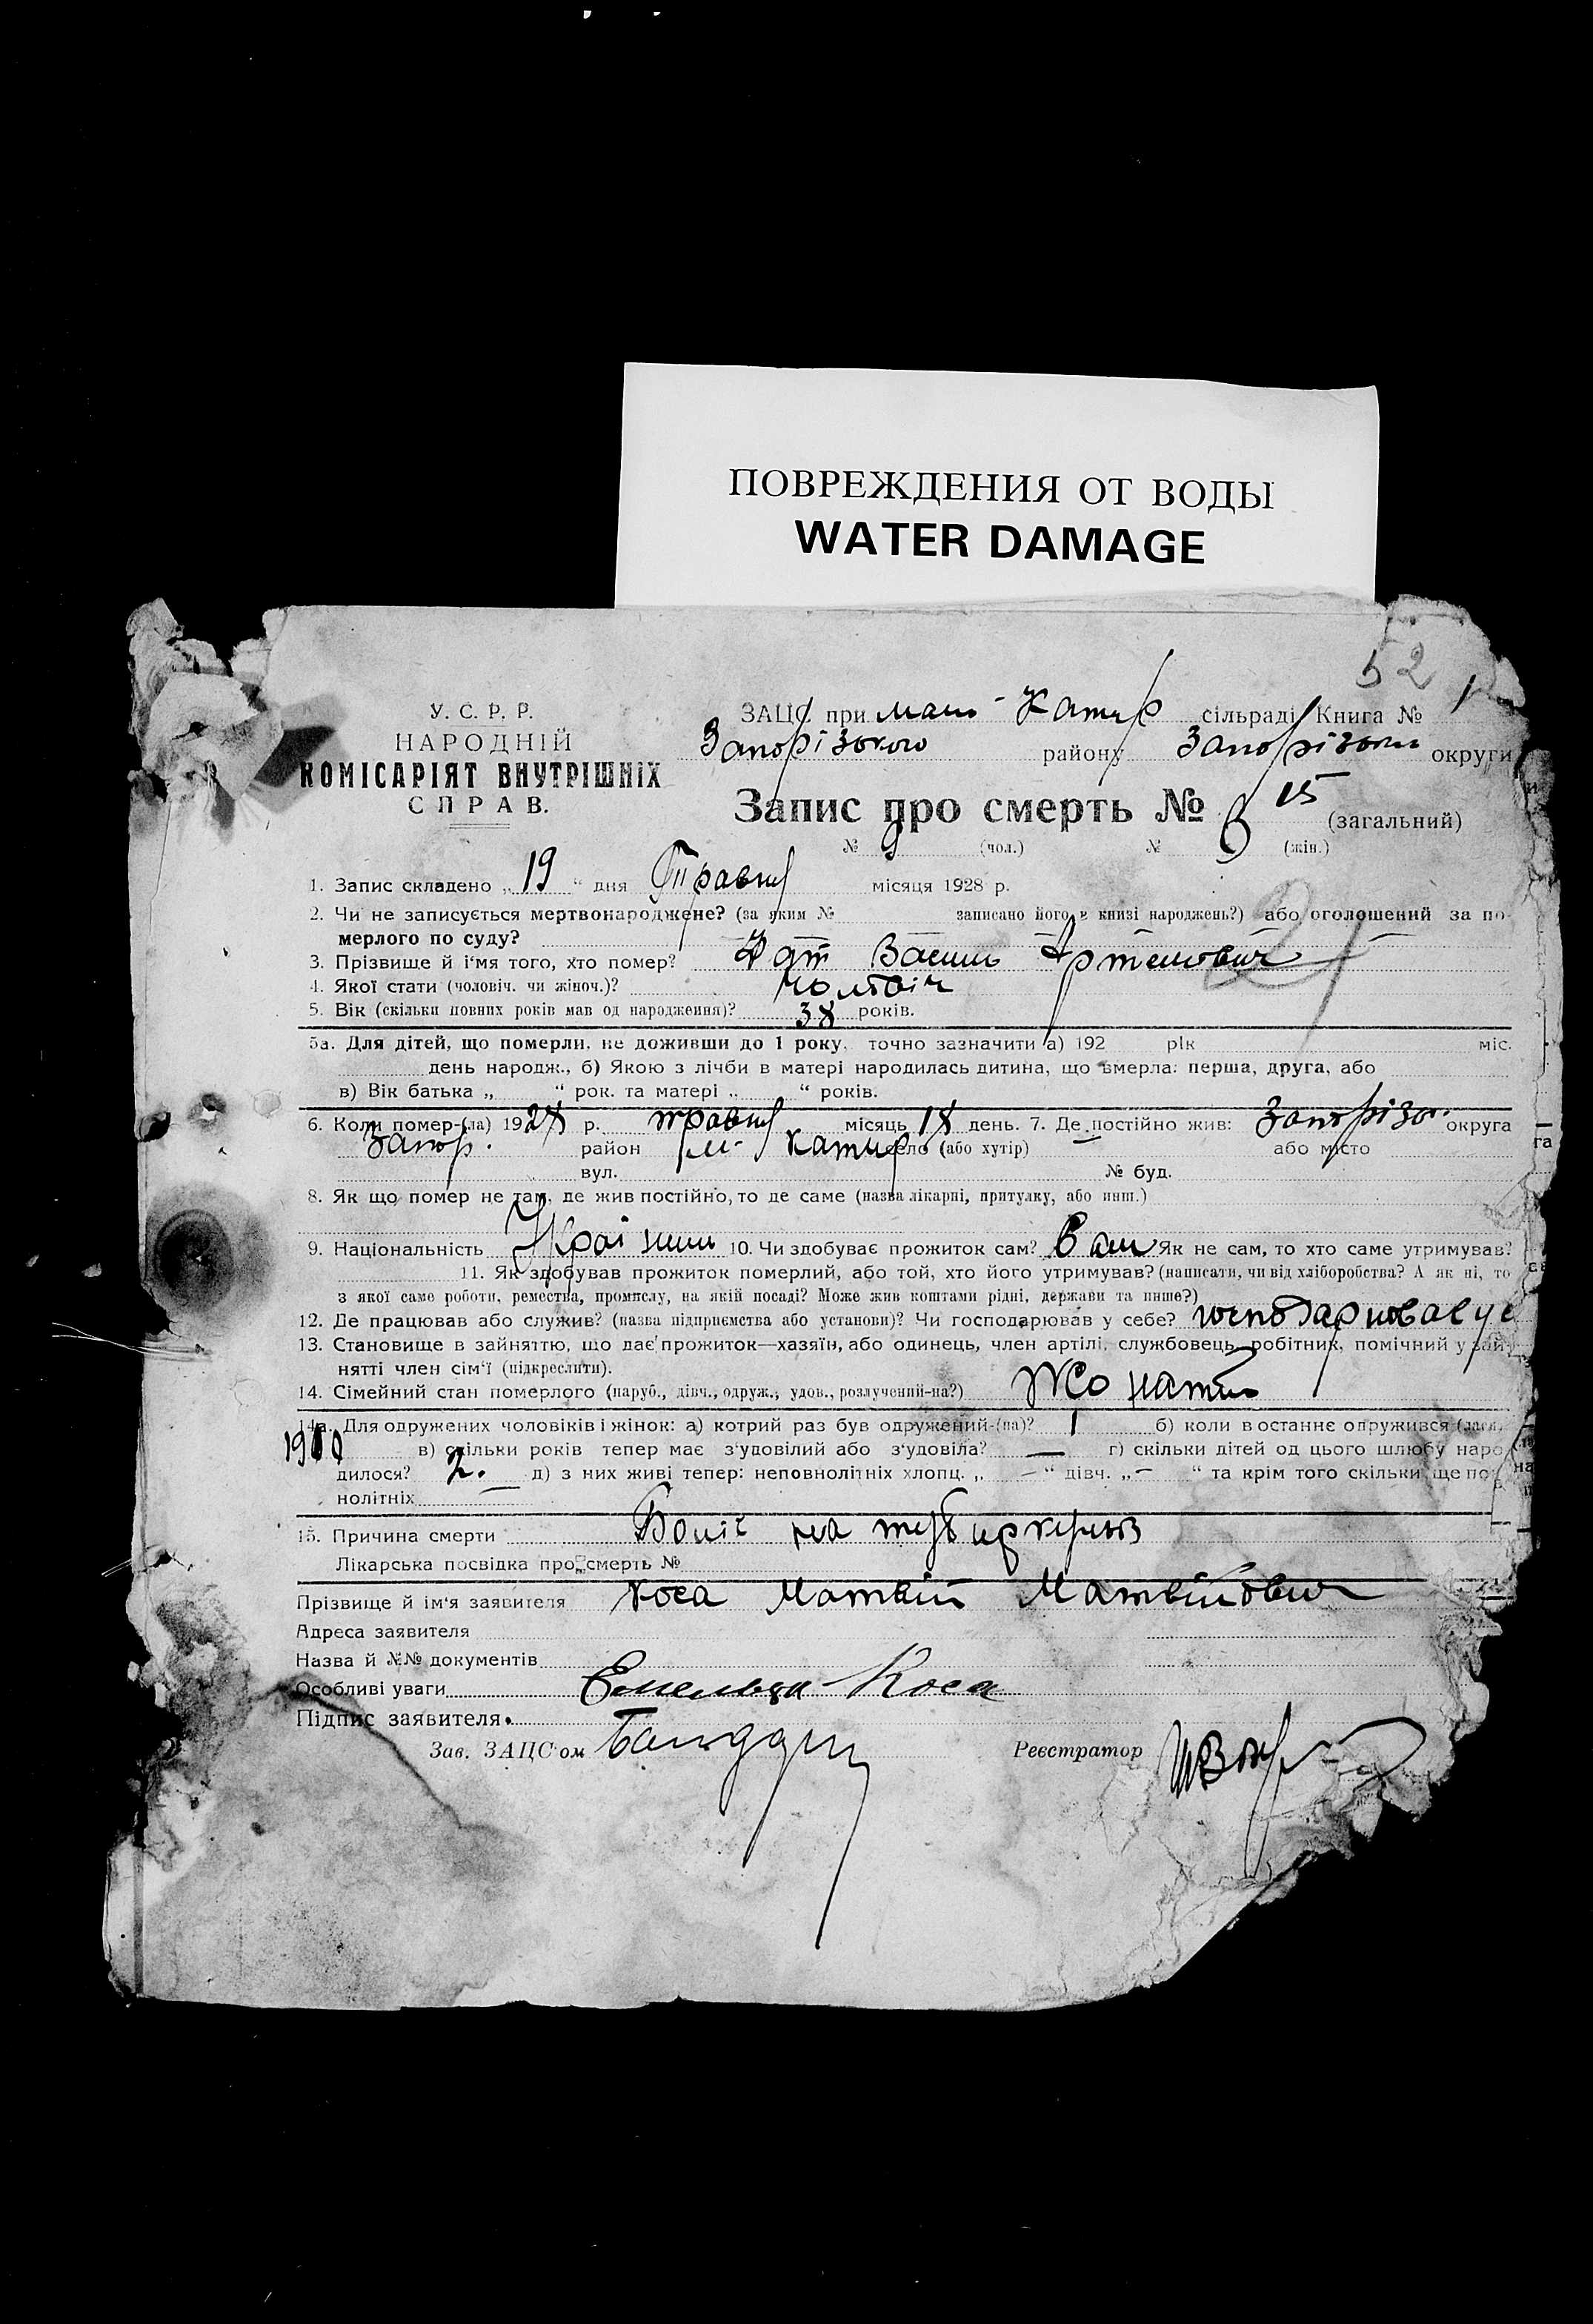 ПОВРЕЖДЕНИЯ ОТ ВОДЫ
WATER DAMAGE
52
У. С. Р. Р.
НАРОДНІЙ
КОМІСАРІЯТ ВНУТРІШНІХ
СПРАВ.
ЗАЦС при мало-Катер сільраді Книга № 1
Запорізького району Запорізьки округи
Запис про смерть № 15 (загальний)
№ 9 (чол.) № (жін.)
1. Запис складено „ 19 “ дня Травня місяця 1928 р.
2. Чи не записується мертвонароджене? (за яким № записано його в книзі народжень?) або оголошений за по-
мерлого по суду?
3. Прізвище й і'мя того, хто помер? Василь Артемович
4. Якої стати (чоловіч. чи жіноч.)? чоловіч
5. Вік (скільки повних років мав од народження)? 38 років.
5а. Для дітей, що померли, не доживши до 1 року, точно зазначити а) 192 рік міс.
день народж., б) Якою з лічби в матері народилась дитина, що вмерла: перша, друга, або
в) Вік батька „ “ рок. та матері „ “ років.
6. Коли помер-(ла) 1928 р. травня місяць 18 день. 7. Де постійно жив: Запорізь. округа
Запор. район м-Катер село (або хутір) — або місто
вул. № буд.
8. Як що помер не там, де жив постійно, то де саме (назва лікарні, притулку, або инш.)
9. Національність Україн 10. Чи здобуває прожиток сам? Сам Як не сам, то хто саме утримував?
11. Як здобував прожиток померлий, або той, хто його утримував? (написати, чи від хліборобства? А як ні, то
з якої саме роботи, ремества, промислу, на якій посаді? Може жив коштами рідні, держави та инше?)
12. Де працював або служив? (назва підприємства або установи)? Чи господарював у себе? господарював у с
13. Становище в зайняттю, що дає прожиток—хазяїн, або одинець, член артілі, службовець, робітник, помічний у зай-
нятті член сім'ї (підкреслити).
14. Сімейний стан померлого (паруб., дівч., одруж., удов., розлучений-на?) Жонатий
14а. Для одружених чоловіків і жінок: а) котрий раз був одружений-(на)? 1 б) коли востаннє одружився
в) скільки років тепер має з'удовілий або з'удовіла? — г) скільки дітей од цього шлюбу наро
дилося? 2. д) з них живі тепер: неповнолітніх хлопц. „ — “ дівч. „ — “ та крім того скільки ще по
нолітніх —
15. Причина смерти Боліє на туберкульоз
Лікарська посвідка про смерть №
Прізвище й ім'я заявителя Коса Матвій Матвійович
Адреса заявителя
Назва й №№ документів
Особливі уваги Емельян Коса
Підпис заявителя
Зав. ЗАЦС'ом
Реєстратор